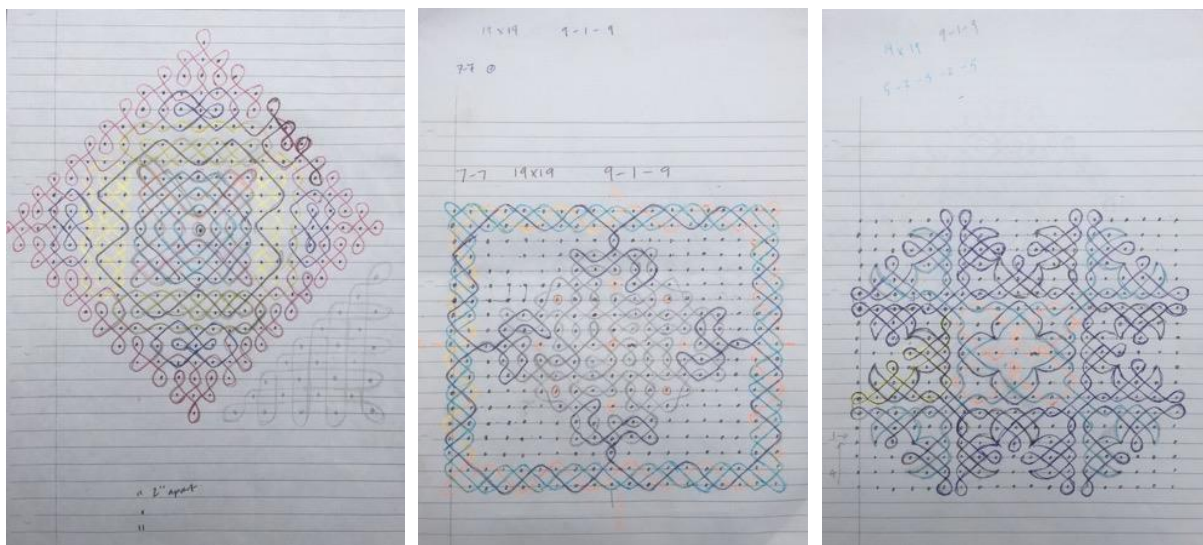 " 2" apart
"
"
19x19 9-1-9
7-7
7-7 19x19 9-1-9
19x19 9-1-9